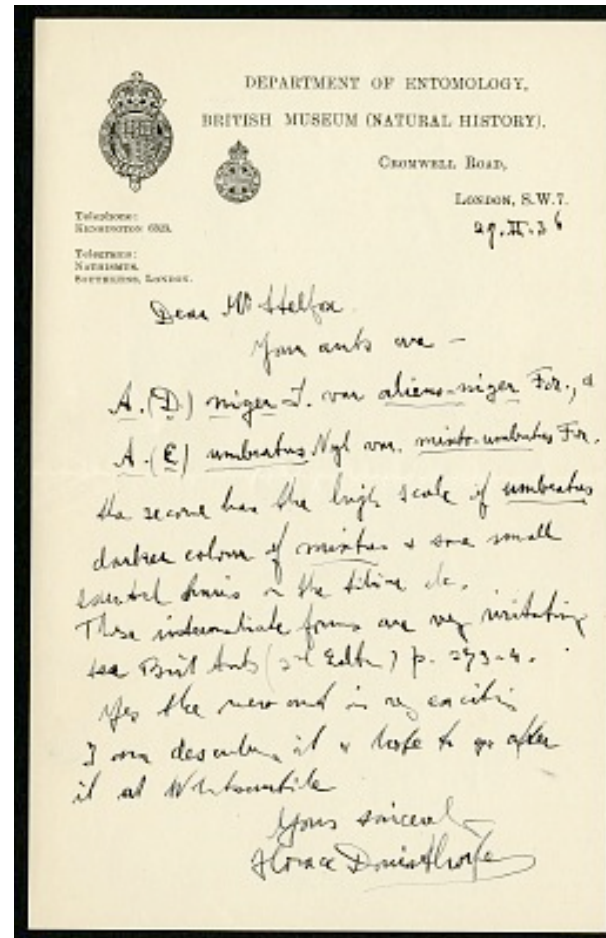 DEPARTMENT OF ENTOMOLOGY,
BRITISH MUSEUM (NATURAL HISTORY),
CROMWELL ROAD,
LONDON, S.W.7.
Telephone:
KENSINGTON 6323.
Telegrams:
NATHISMUS,
SOUTHKENS, LONDON.
29.II.36
Dear Mr Stelfox
Your ants are -
A. (D.) niger L. var alieno-niger For., &
A. (C) umbratus Nyl var. mixto-umbratus For.
the second has the high scale of umbratus
darker colour of mixtus & some small
hairs on the tibiae &c.
These intermediate forms are very irritating
see Brit Ants (2d Edtn) p. 273-4.
Yes the new ant is very exciting
I am describing it & hope to go after
it at Whitsuntide
Yours sincerely
Horace Donisthorpe